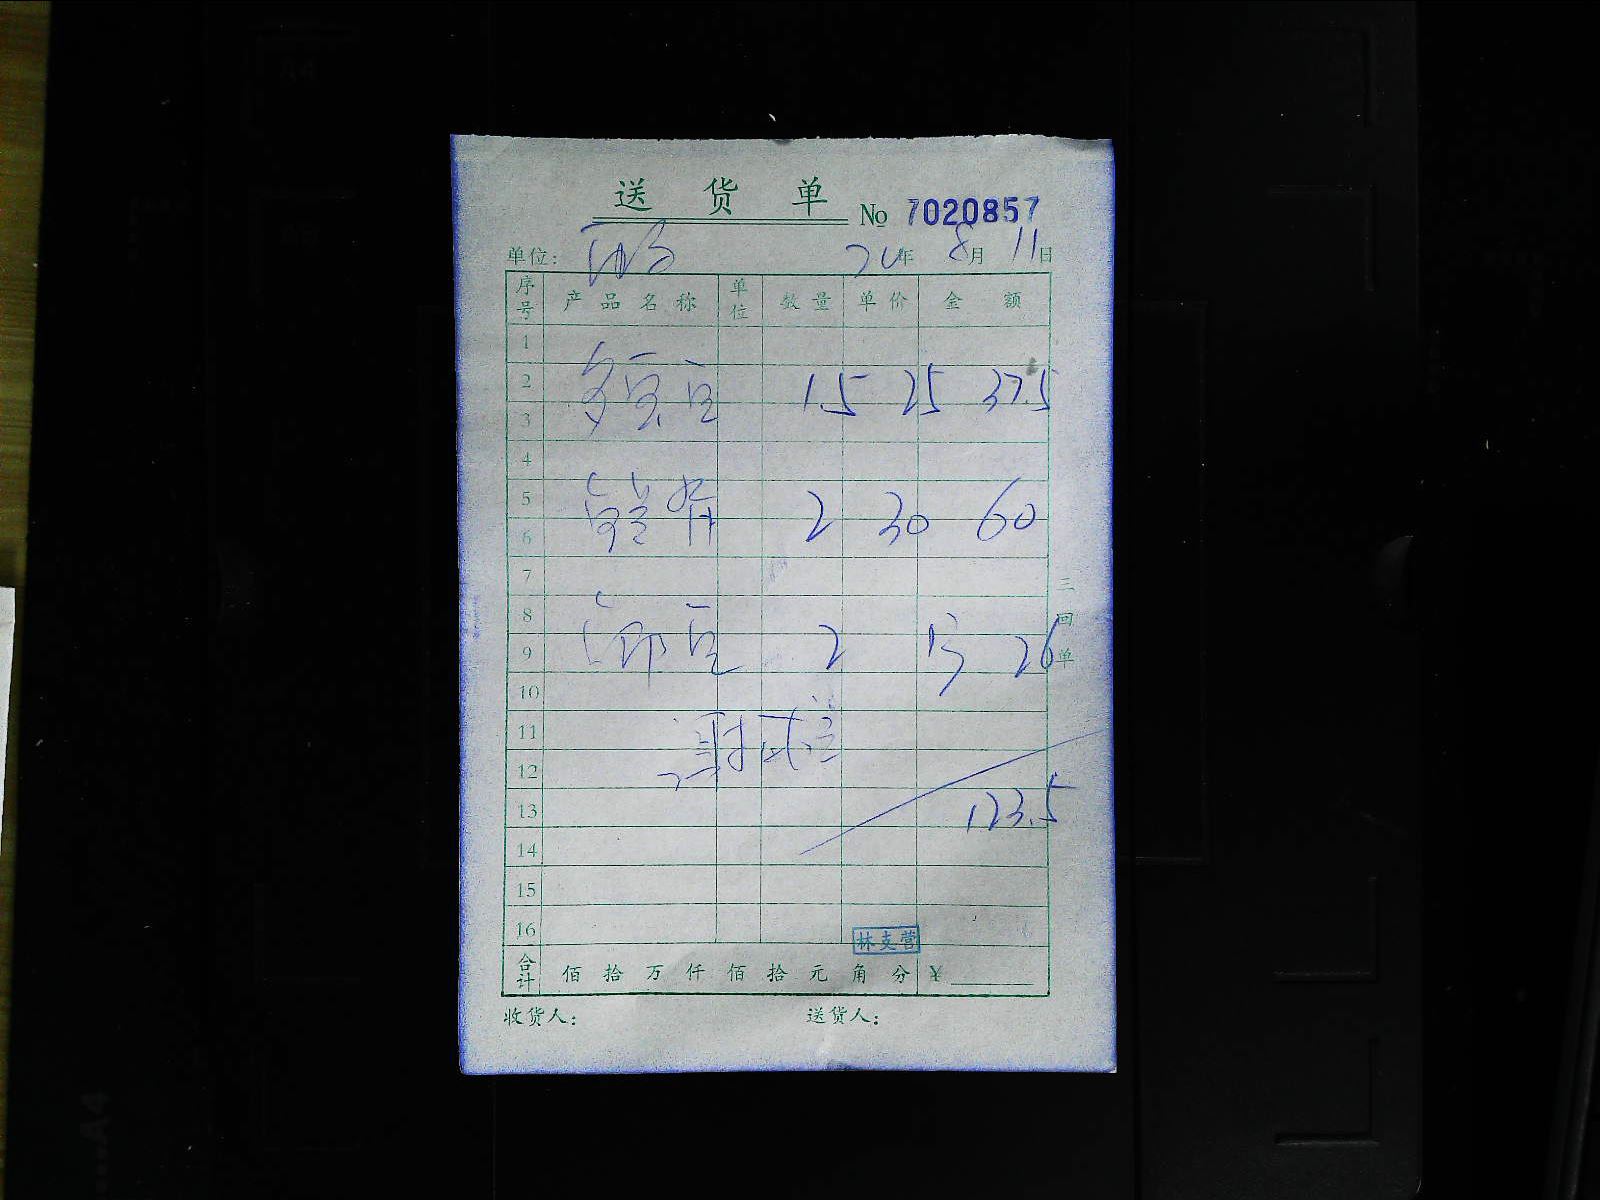 送 货 单 No 7020857
单位: 年 8月 11日
序号 产品名称 单位 数量 单价 金额
1
2 1.5 25 37.5
3
4
5 2 30 60
6
7
8
9 2 13 26
10
11
12
13 123.5
14
15
16 林支营
合计 佰 拾 万 仟 佰 拾 元 角 分 ¥
收货人: 送货人:
三回单